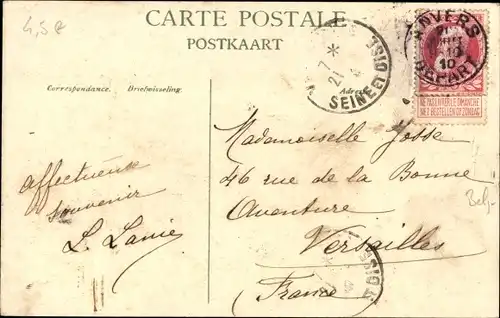 4,5€
CARTE POSTALE
POSTKAART
Correspondance. Briefwisseling.
Adresse
ANVERS
10
DEPART
NE PAS LIVRER LE DIMANCHE
NIET BESTELLEN OP ZONDAG
SEINE ET OISE
Mademoiselle Josse
46 rue de la Bonne
Aventure
Versailles
France
Belg.
Affectueux
souvenir
L. Lanié